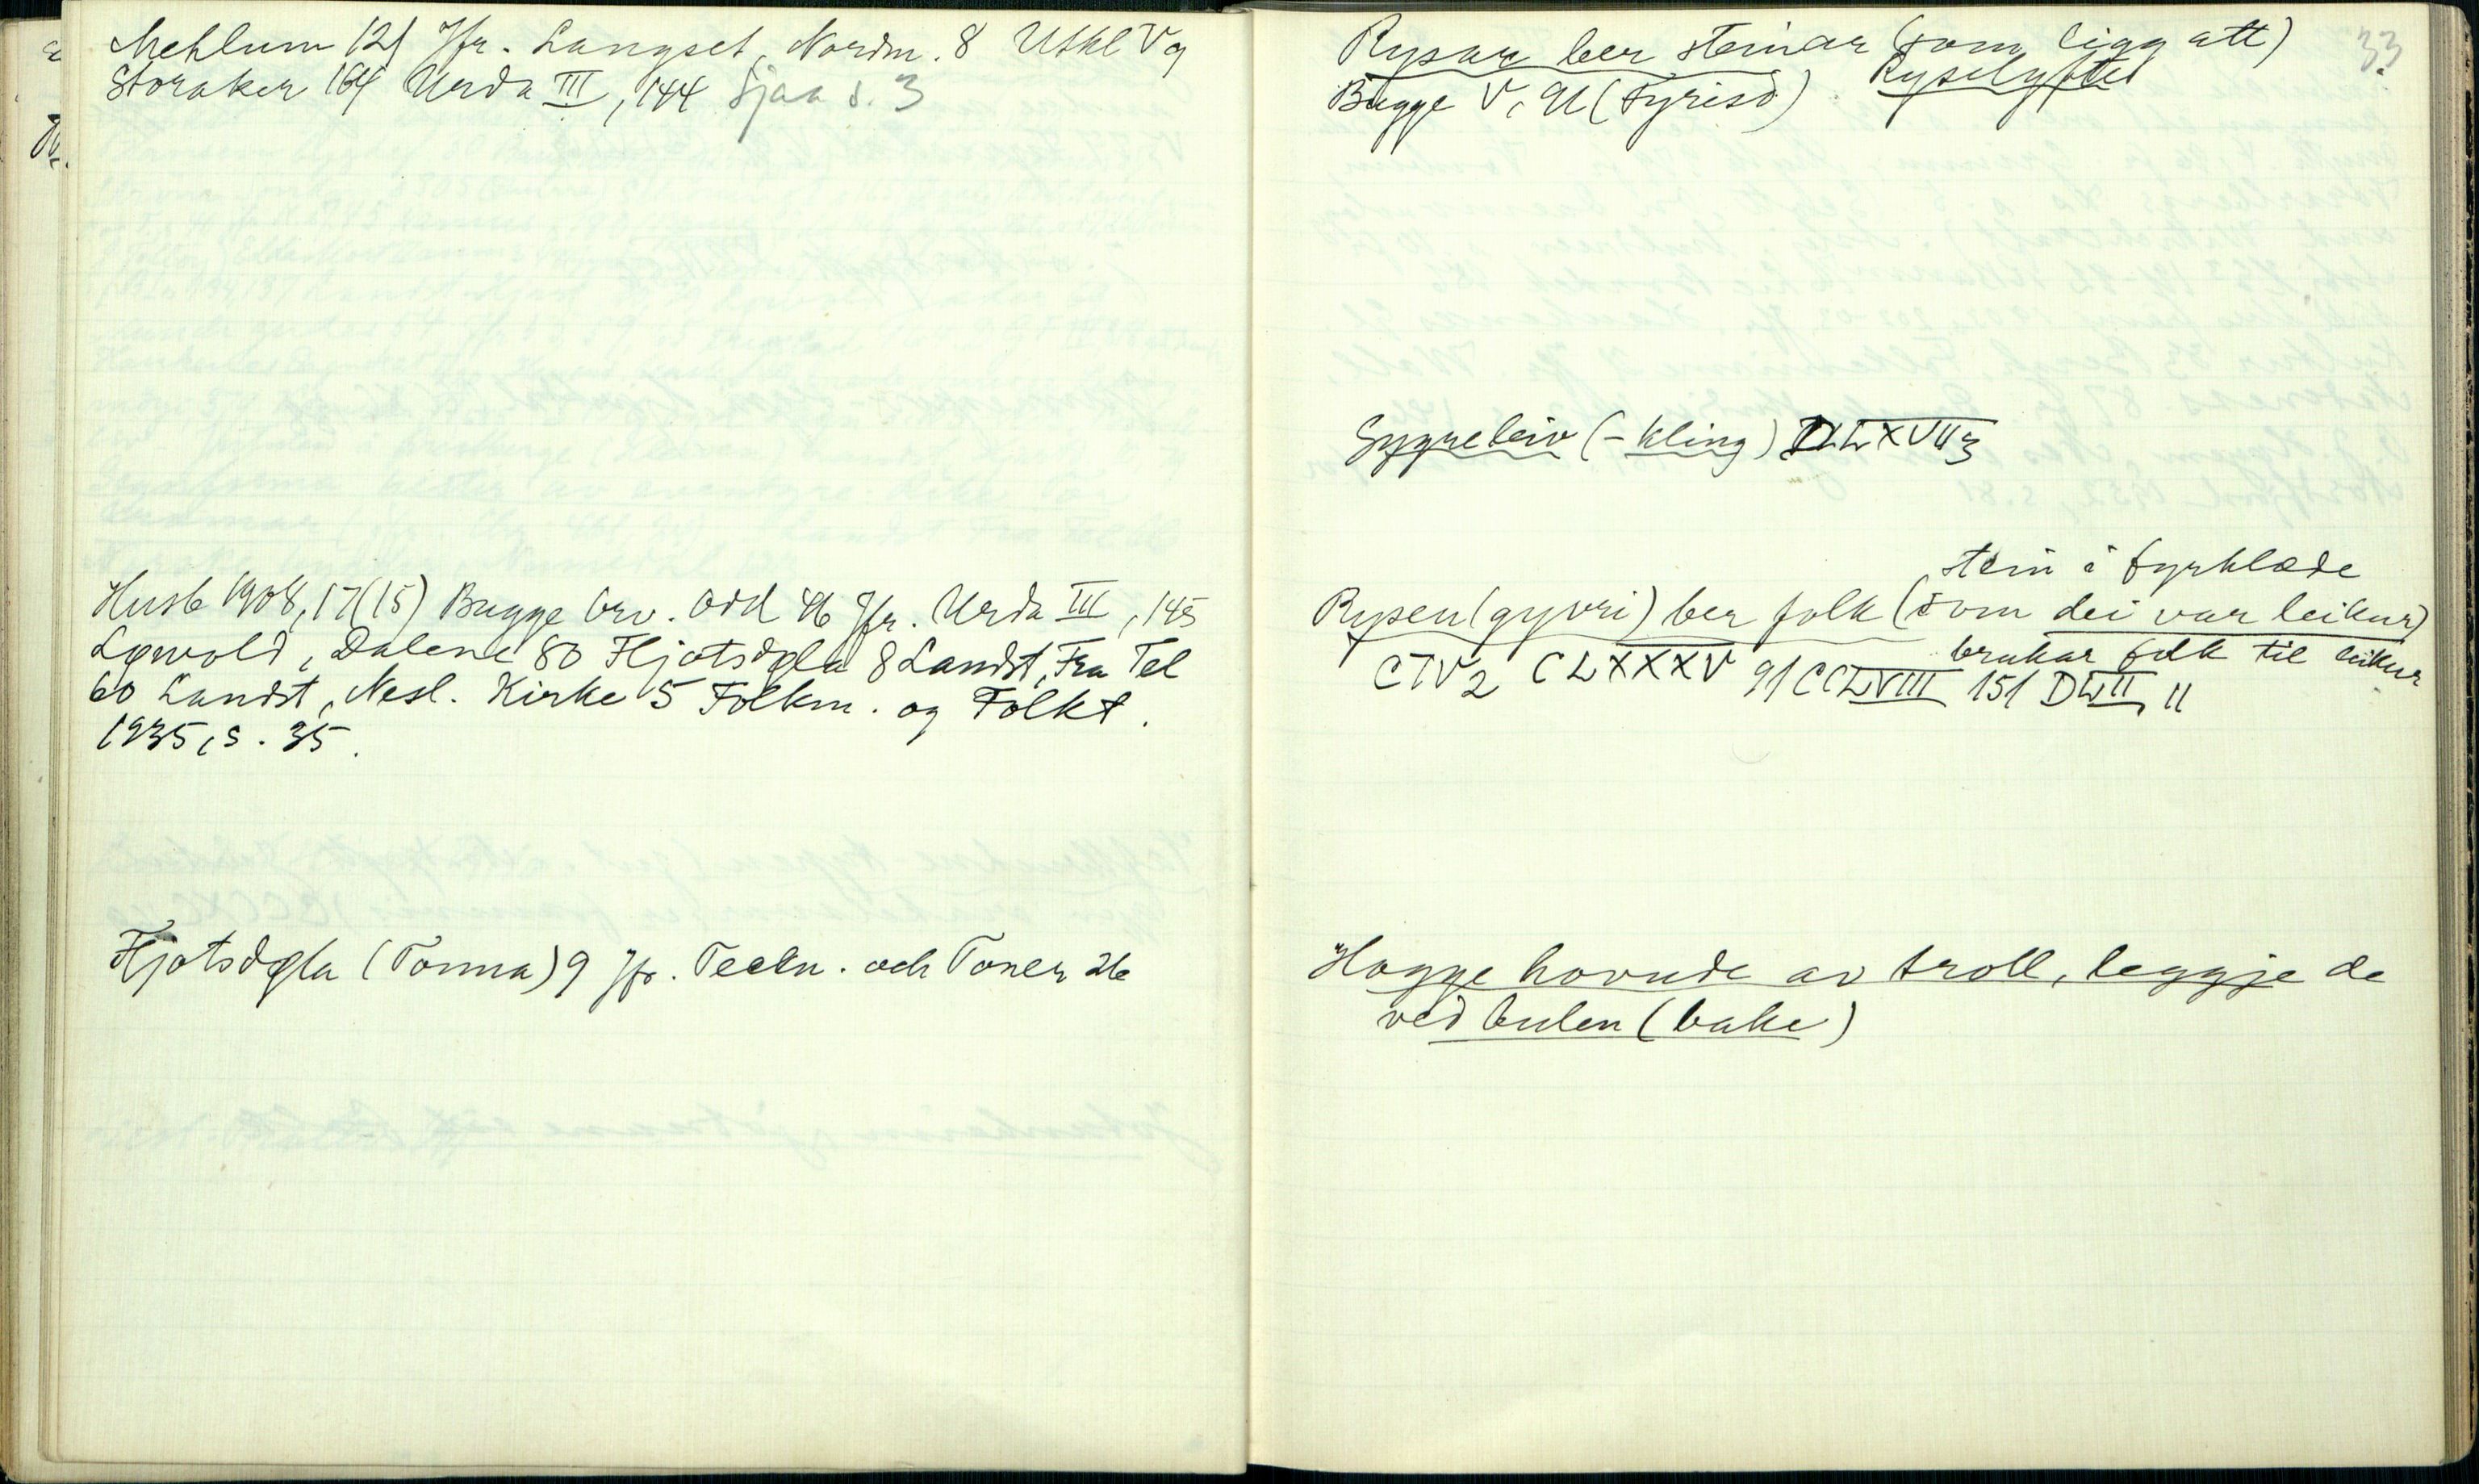 Mehlum 121 Jfr. Langset, Nordm. 8 Utkl V 9
Storaker 164 Urda III, 144 Sjaa s. 3
Husb 1908, 17(15) Bugge brv. Odd 46 Jfr. Urda III, 145
Løvold, Dalene 80 Fljotsdøla 8 Landst, Fra Tel
60 Landst, Nesl. Kirke 5 Folkm. og Folkt.
1935, s. 35.
Fljotsdøla (Tonna) 9 Jfr. Teckn. och Toner 26
33
Rysar ber steinar (som ligg att)
Ryselyftet
Bugge V, 91 (Fyrisd)
Gygreleiv (-kling) DLXVII 3
stein i fyrklæde
Rysen (gyvri) ber folk (som dei var leikur)
brukar folk til leikur
CIV 2 CLXXXV 91 CCLVIII 151 DLII 11
Hogge hovude av troll, leggje de
ved bulen (bake)